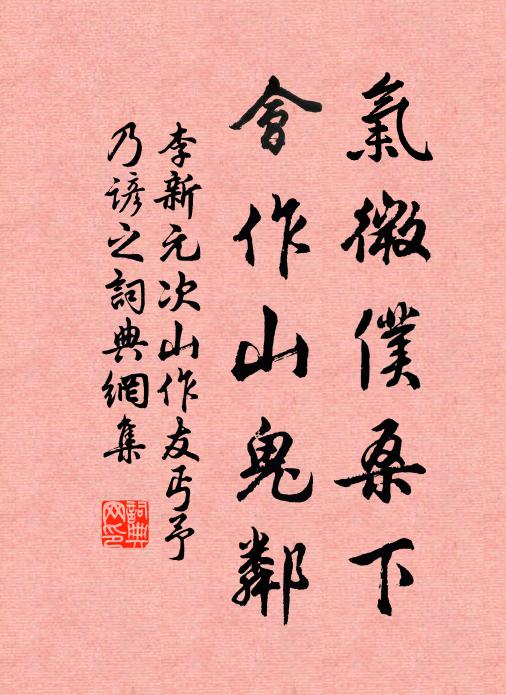 氣微僕桑下
會作山鬼鄰
李新元次山作友丐予
乃諺之詞典網集
詞典網印